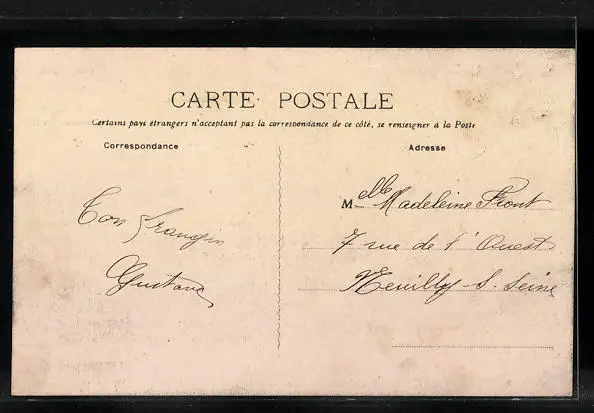 CARTE POSTALE
Certains pays étrangers n'acceptent pas la correspondance de ce côté, se renseigner à la Poste
Correspondance
Adresse
Ton frangin
Gustave
Melle Madeleine Front
7 rue de l'Ouest
Neuilly-S-Seine